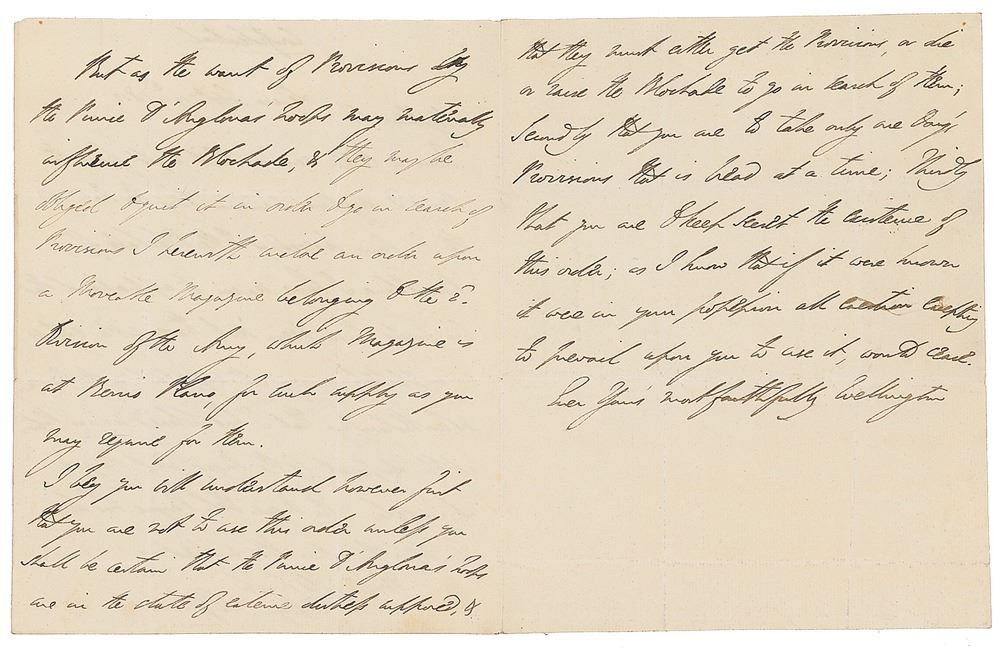 But as the want of Provisions by
the Prince D'Anglona's troops may materially
influence the Blockade, & they may be
obliged to quit it in order to go in search of
Provisions I herewith inclose an order upon
a Moveable Magazine belonging to the 2d.
Division of the Army, which Magazine is
at, for such supply as you
may require for them.
I beg you will understand however first
that you are not to use this order unless you
shall be certain that the Prince D'Anglona's troops
are in the state of extreme distress supposed, &
that they must either get the Provisions, or die
or raise the Blockade to go in search of them;
Secondly that you are to take only one Day's
Provisions that is bread at a time; Thirdly
that you are to keep secret the existence of
this order; as I know that if it were known
it were in your possession all exertion excepting
to prevail upon you to use it, would cease.
Ever Yours most faithfully Wellington